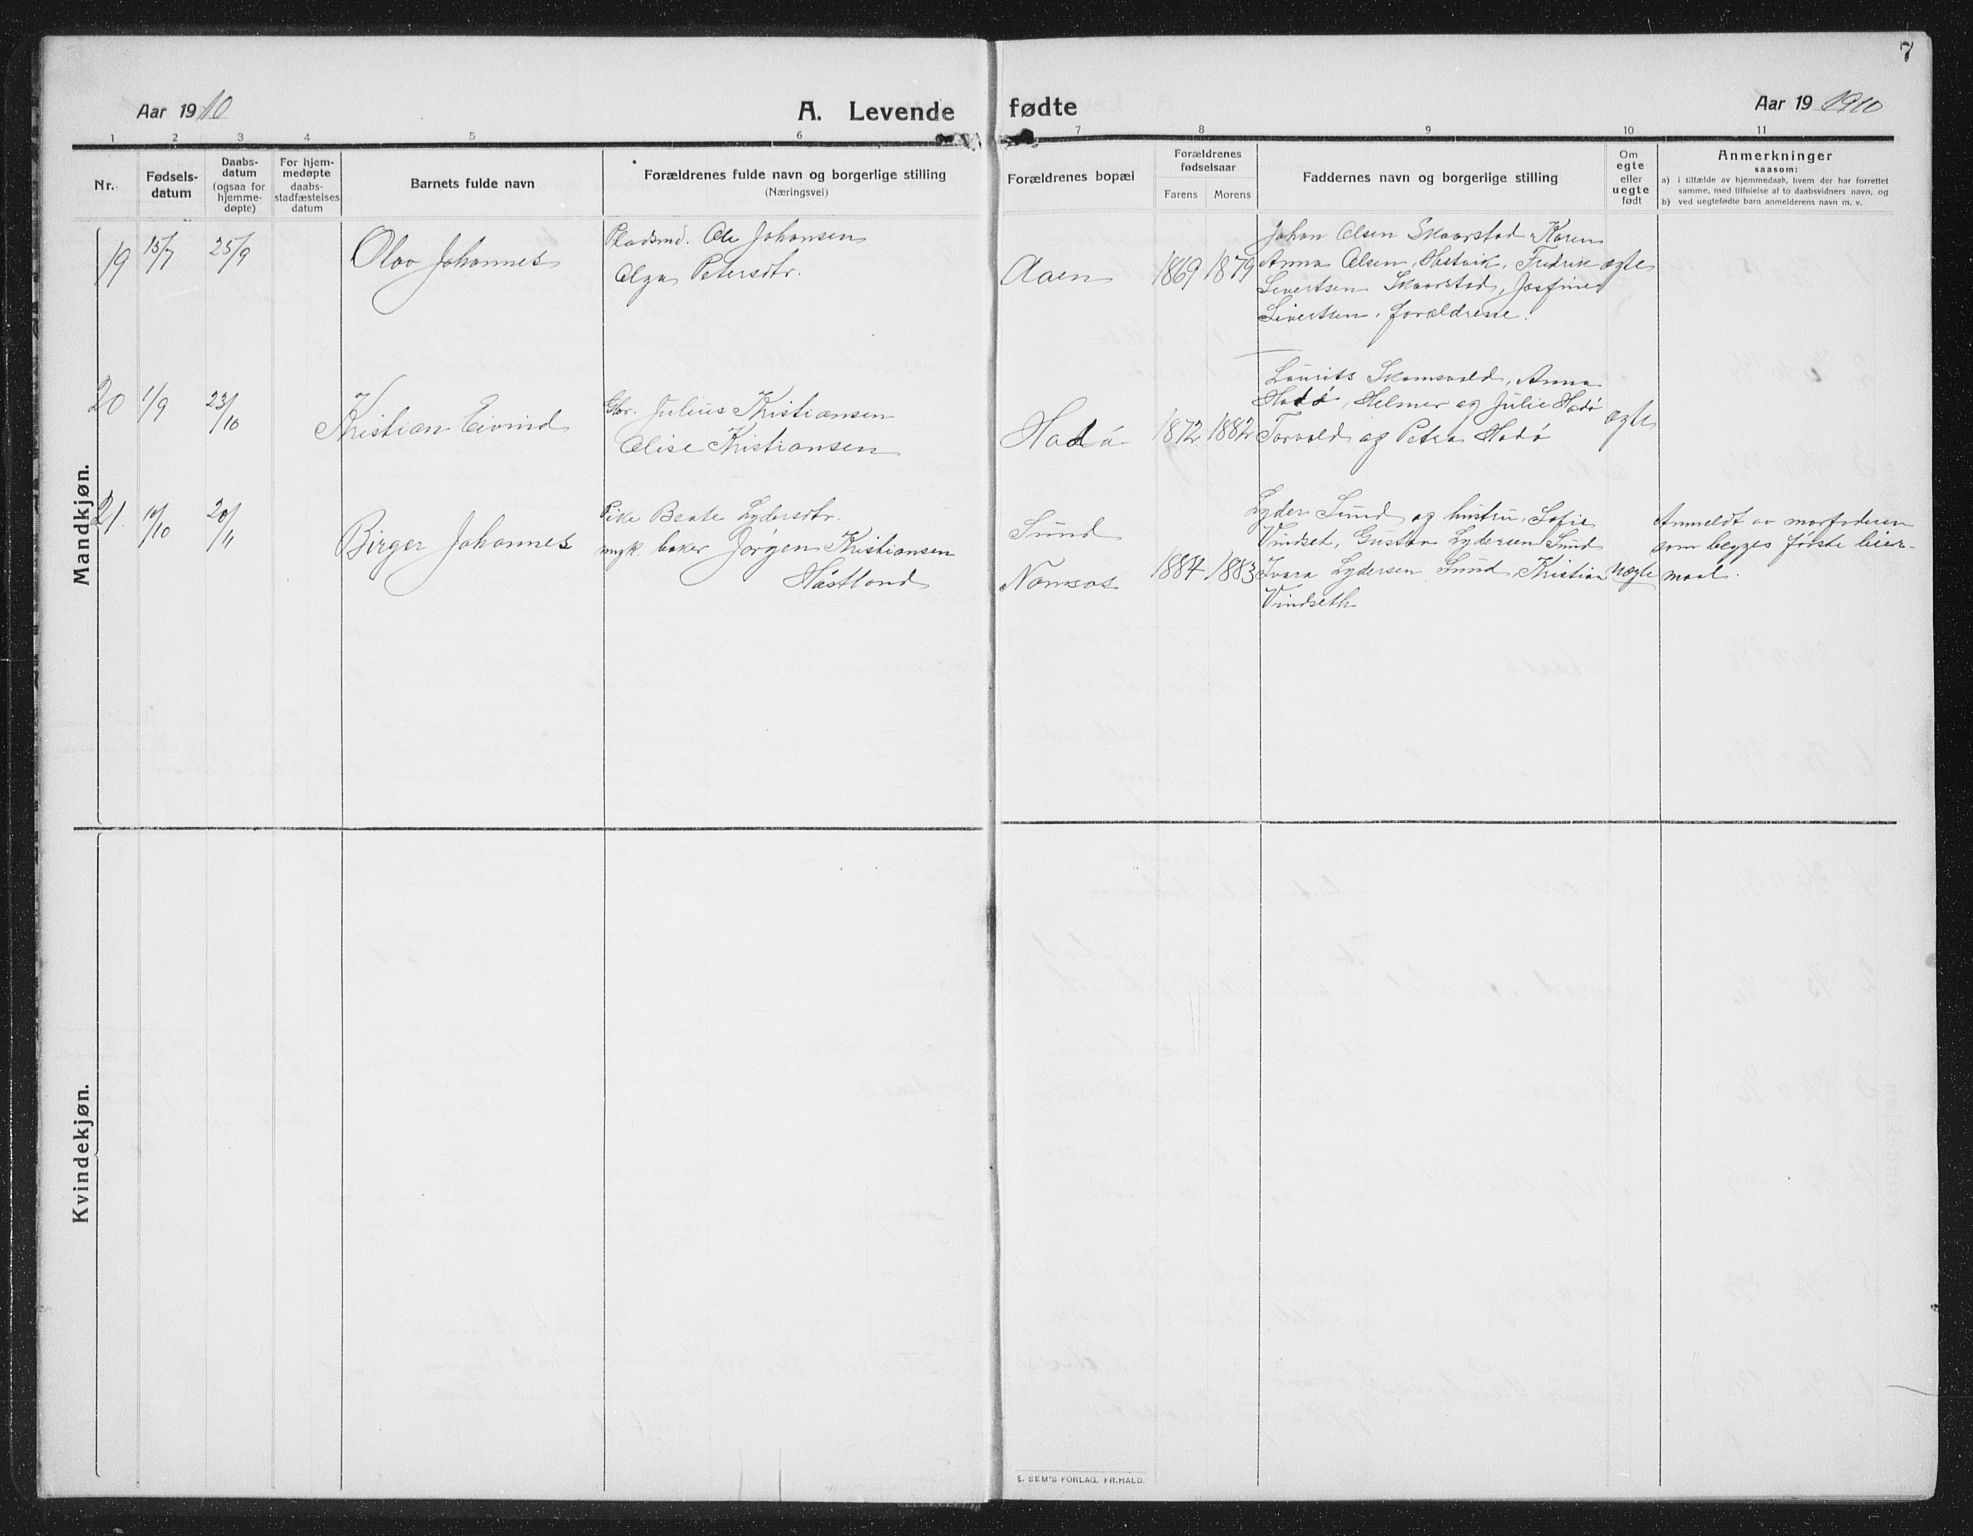 7
Aar 1910
A. Levende fødte
Aar 19 1910
1 2 3 4 5 6 7 8 9 10 11
Nr.
Fødsels-
datum
Daabs-
datum
(ogsaa for
hjemme-
døpte)
For hjem-
medøpte
daabs-
stadfæstelses
datum
Barnets fulde navn
Forældrenes fulde navn og borgerlige stilling
(Næringsvei)
Forældrenes bopæl
Forældrenes
fødselsaar
Farens Morens
Faddernes navn og borgerlige stilling
Om
egte
eller
uegte
født
Anmerkninger
saasom:
a) i tilfælde av hjemmedaab, hvem der har forrettet
samme, med tilføielse af to daabsvidners navn, og
b) ved uegtefødte barn anmelderens navn m. v.
Mandkjøn.
19 15/7 25/9
Olav Johannes
Pladsmd. Ole Johansen
Olga Petersdtr.
Aaen
1869 1879
Johan Olsen Skaarstad, Karen
Anna Olsen, Fredrik
Sivertsen Skaarstad, Josfine
Sivertsen, forældrene.
ægte
20 1/9 23/10
Kristian Eivind
Gbr. Julius Kristiansen
Elise Kristiansen
Hadø
1872 1882
Laurits Skomsvold, Anna
Hadø, Helmer og Julie Hadø
Torvald og Petra Hadø
ægte
21. 10/10 20/11
Birger Johannes
Pike Beate Lydersdtr.
ungk. baker Jørgen Kristiansen
Høstland
Sund
Namsos
1887 1883
Lyder Sund og hustru, Sofie
Vindset, Gustav Lydersen Sund
Ivara Lydersen Sund, Kristian
Vindseth
uægte
Anmeldt av morfaderen
som begges første leier-
maal.
Kvindekjøn.
E. SEM'S FORLAG, FR.HALD.